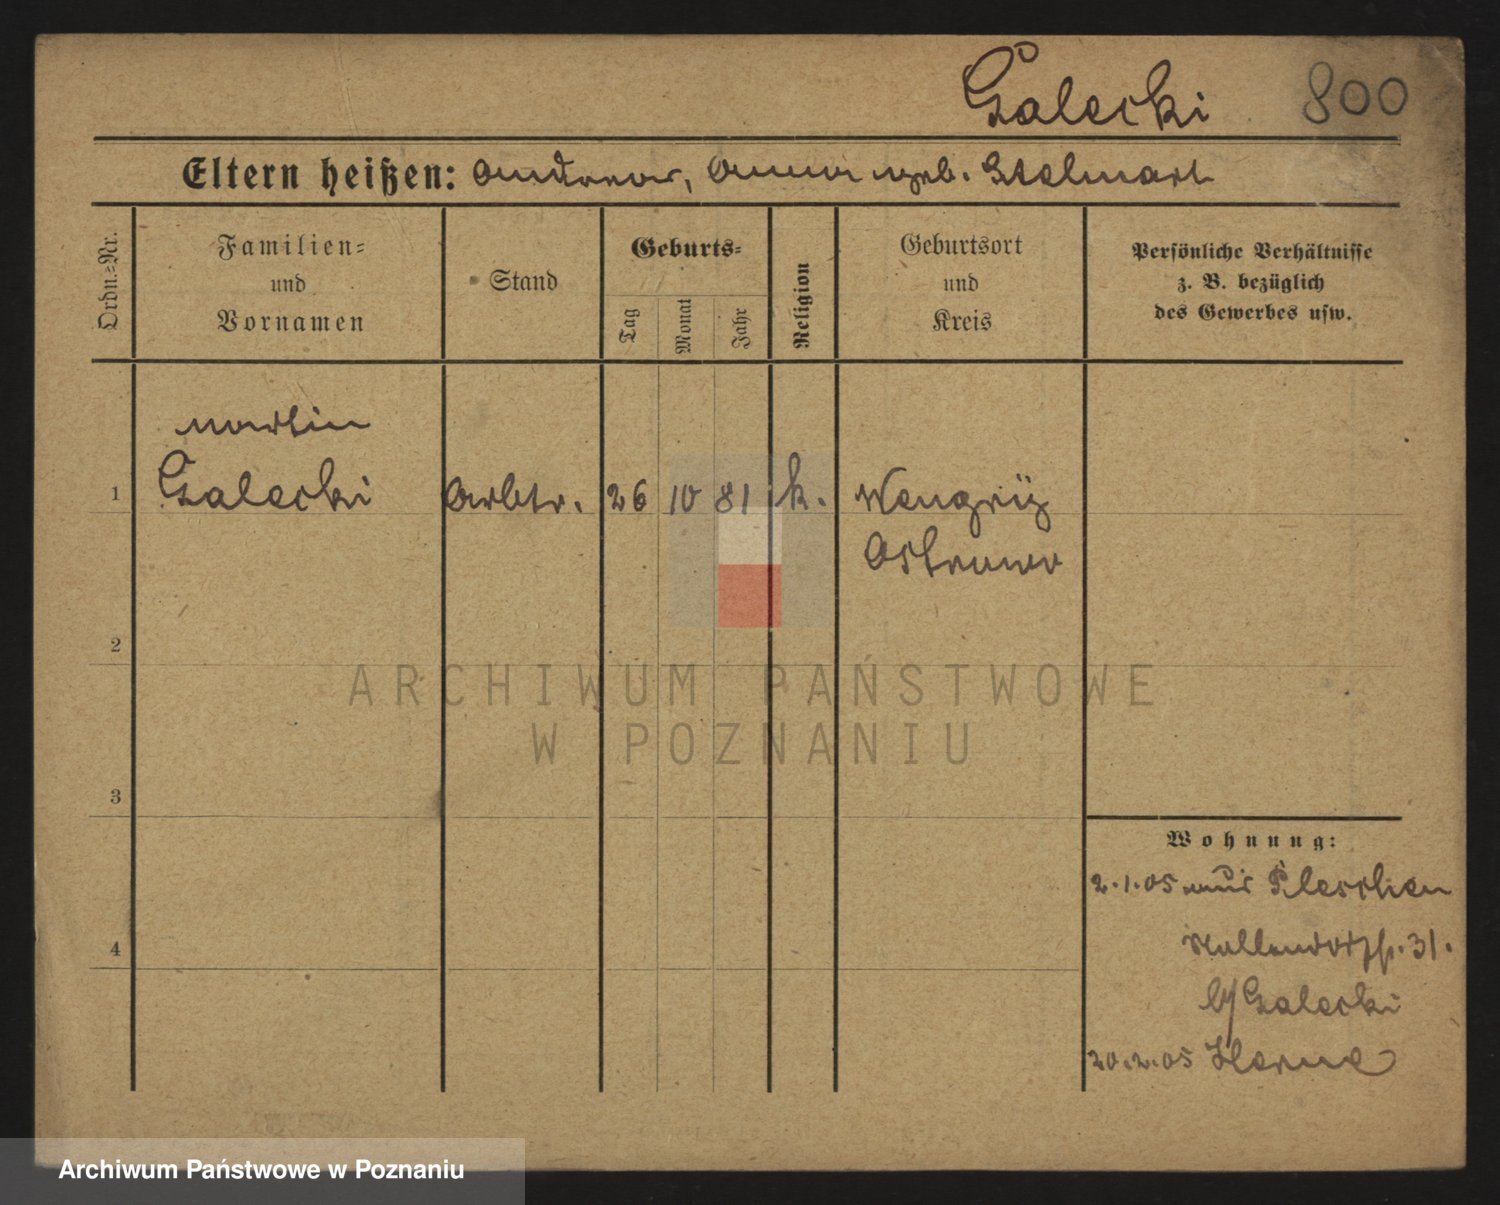 Galecki 800
Eltern heißen: Andreas, Anna geb. Stelmach
Ordn.=Nr.
Familien=
und
Vornamen
Stand
Geburts=
Tag
Monat
Jahr
Religion
Geburtsort
und
Kreis
Persönliche Verhältnisse
z. B. bezüglich
des Gewerbes usw.
Martin
1 Galecki Arbtr. 26 10 81 k. Wengrÿ
Ostrowo
2
ARCHIWUM PAŃSTWOWE
W POZNANIU
3
Wohnung:
2.1.05 aus Pleschen
4
31.
b/ Galecki
20.2.05 Herne
Archiwum Państwowe w Poznaniu